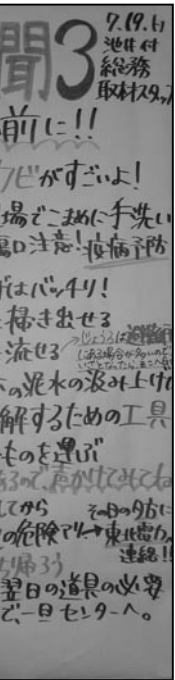 聞3
7.19.(土)
池田付
総務
取材スタッフ
前に!!
カビがすごいよ!
場でこまめに手洗い
傷口注意!疫病予防
げはバッチリ!
掃き出せる
流せる
じょうろは避難所
にある場合が多いので
の泥水の汲み上げ
解するための工具
ものを運ぶ
あるので、声かけてみてね
してから その日の夕方に
の危険アリ→東北電力へ
連絡!!
ち帰ろう
翌日の道具の必要
で、一旦センターへ。